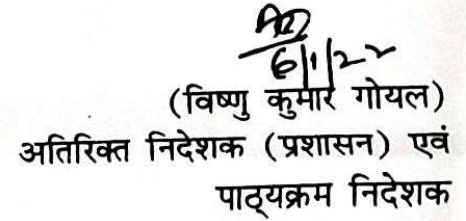 6/1/22
(विष्णु कुमार गोयल)
अतिरिक्त निदेशक (प्रशासन) एवं
पाठ्यक्रम निदेशक